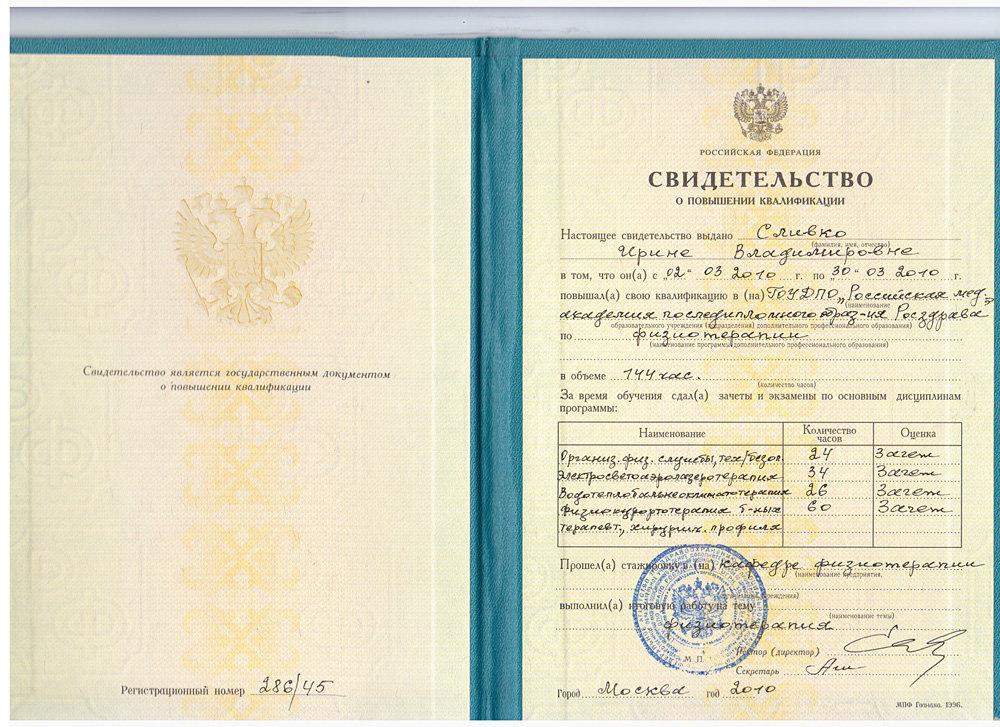 Свидетельство является государственным документом
о повышении квалификации
Регистрационный номер 286/45
РОССИЙСКАЯ ФЕДЕРАЦИЯ
СВИДЕТЕЛЬСТВО
О ПОВЫШЕНИИ КВАЛИФИКАЦИИ
Настоящее свидетельство выдано Сливко
(фамилия, имя, отчество)
Ирине Владимировне
в том, что он(а) с „02" 03 2010 г. по „30" 03 2010 г.
повышал(а) свою квалификацию в (на) ГОУДПО „Российская мед.
(наименование
академия последипломного образ-ия Росздрава
образовательного учреждения (подразделения) дополнительного профессионального образования)
по физиотерапии
(наименование программы дополнительного профессионального образования)
в объеме 144 час.
(количество часов)
За время обучения сдал(а) зачеты и экзамены по основным дисциплинам
программы:
Наименование Количество часов Оценка
Организ. физ. службы, тех/безоп. 24 Зачет
Электросветоаэролазеротерапия 34 Зачет
Водотеплобальнеоклиматотерапия 26 Зачет
Физиокурортотерапия б-ных 60 Зачет
терапевт., хирургич. профиля
Прошел(а) стажировку в (на) кафедре физиотерапии
(наименование предприятия,
учреждения)
выполнил(а) итоговую работу на тему
(наименование темы)
физиотерапия
М П
Ректор (директор)
Секретарь
Город Москва год 2010
МПФ Гознака. 1996.